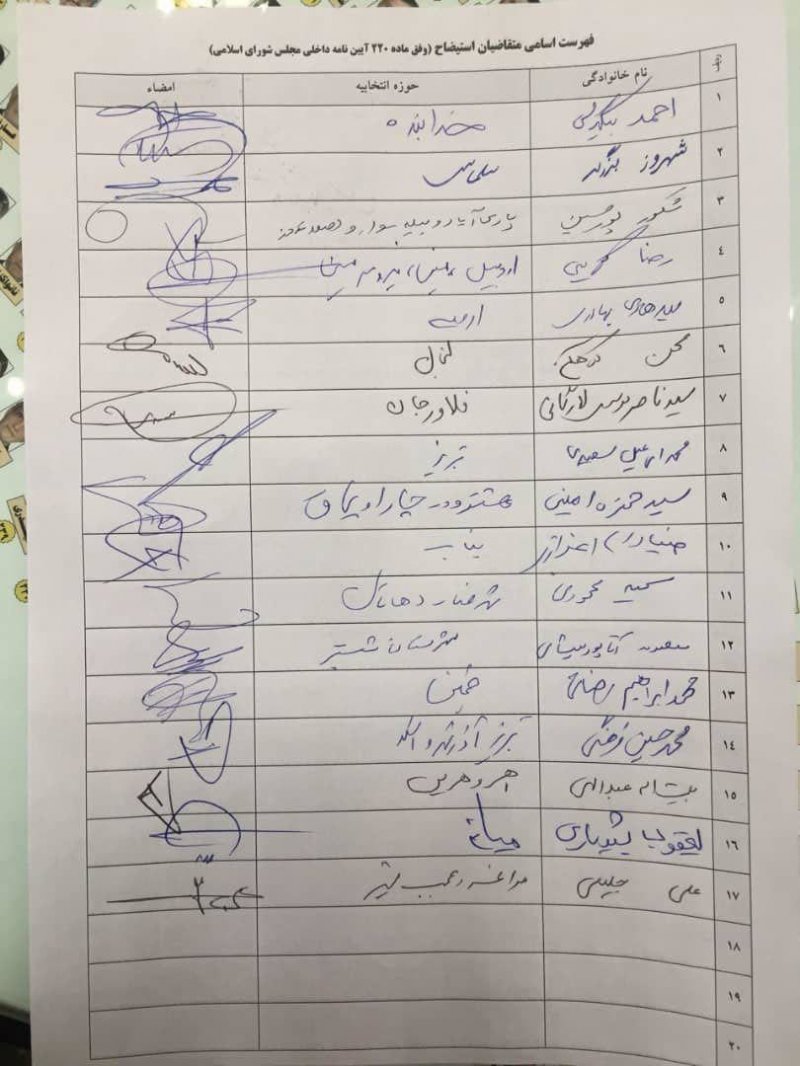 فهرست اسامی متقاضیان استیضاح (وفق ماده ۲۲۰ آیین نامه داخلی مجلس شورای اسلامی)
ردیف نام خانوادگی حوزه انتخابیه امضاء
۱ احمد بیگدلی خدابنده
۲ شهروز برزگر سلماس
۳ شکور پورحسین پارس آباد و بیله سوار و
۴ رضا کریمی اردبیل، نمین، نیر و سرعین
۵ میرهادی بهادری ارومیه
۶ محسن کوهکن لنجان
۷ سید ناصر موسوی لارگانی فلاورجان
۸ محمد اسماعیل سعیدی تبریز
۹ سید حمزه امینی هشترود و چاراویماق
۱۰ اعزازی بناب
۱۱ سمیه محمودی شهرضا و دهاقان
۱۲ معصومه آقاپور علیشاهی شهرستان شبستر
۱۳ محمد ابراهیم رضایی خمین
۱۴ محمد حسین فرهنگی تبریز آذرشهر و اسکو
۱۵ بیت اله عبدالهی اهر و هریس
۱۶ یعقوب شیویاری میانه
۱۷ علی جلیلی مراغه و عجب شیر
۱۸
۱۹
۲۰